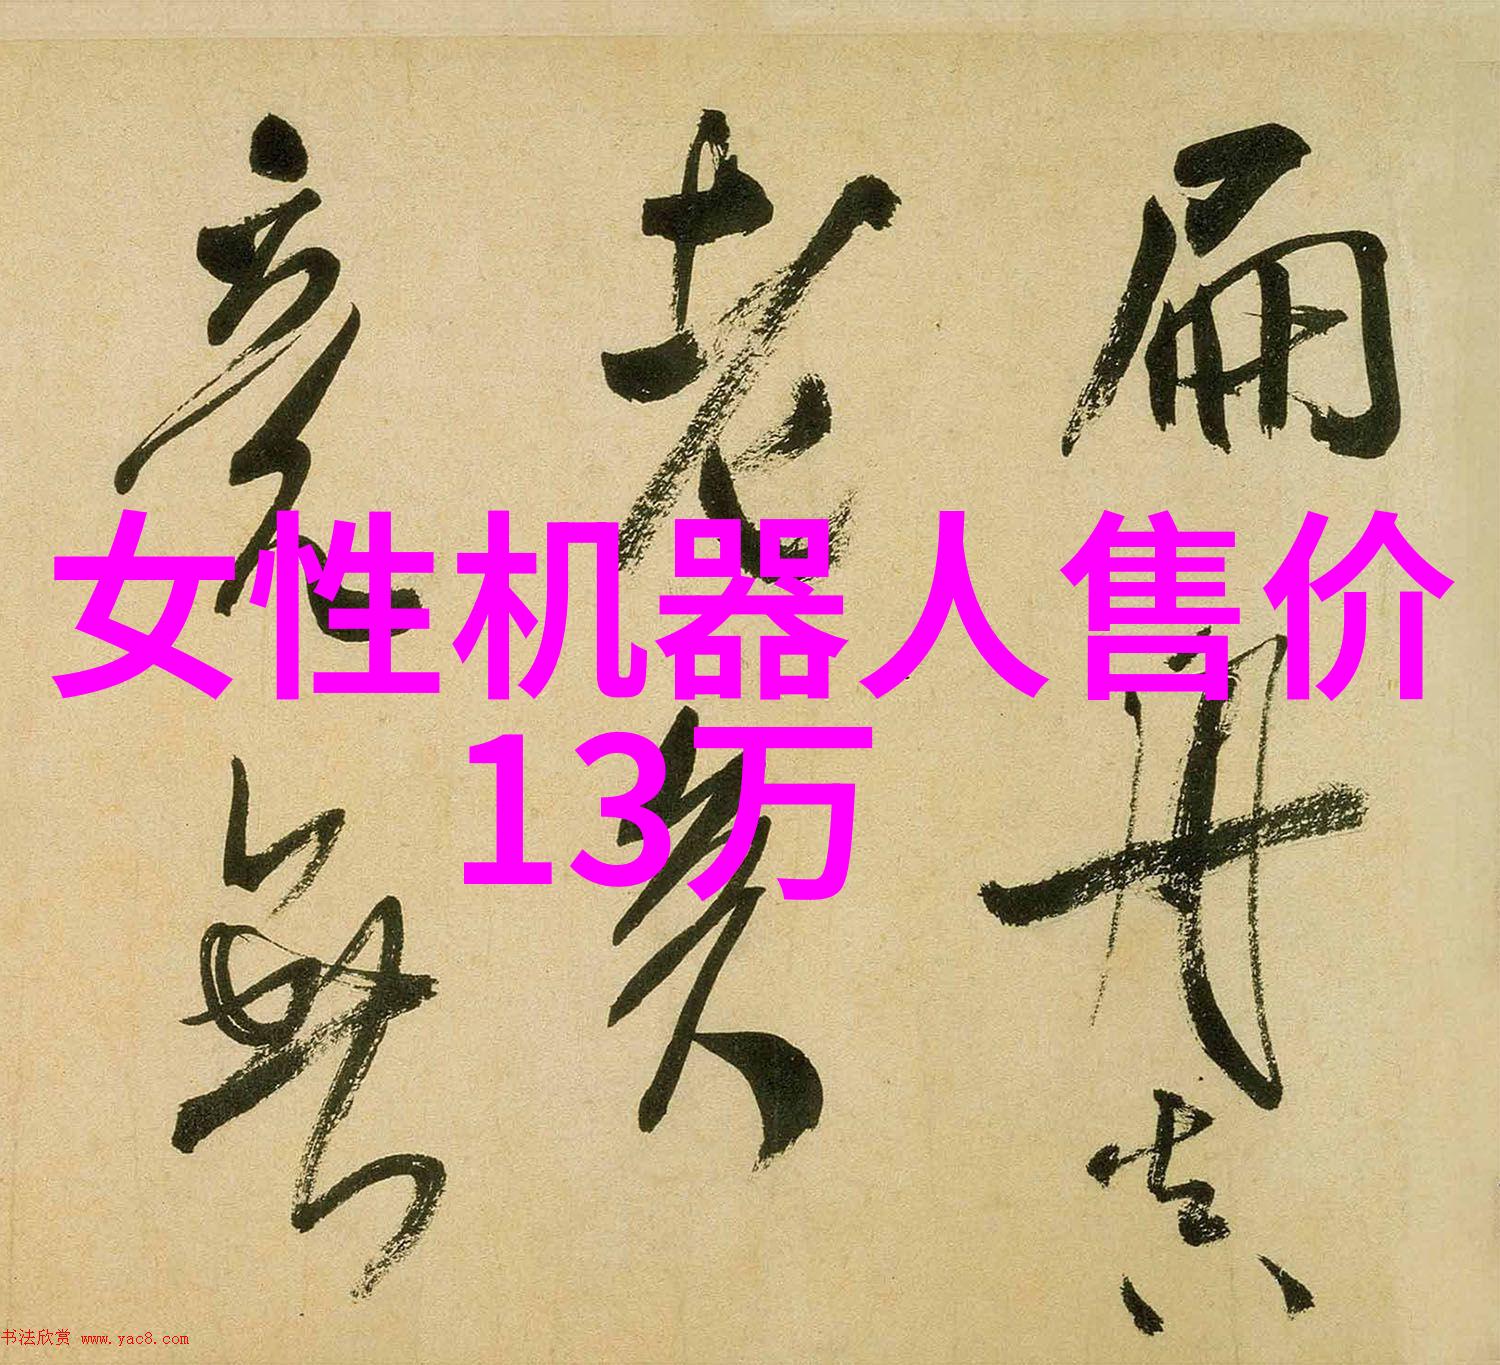 扁舟真
老矣
無
女性机器人售价
13万
书法欣赏 www.yac8.com